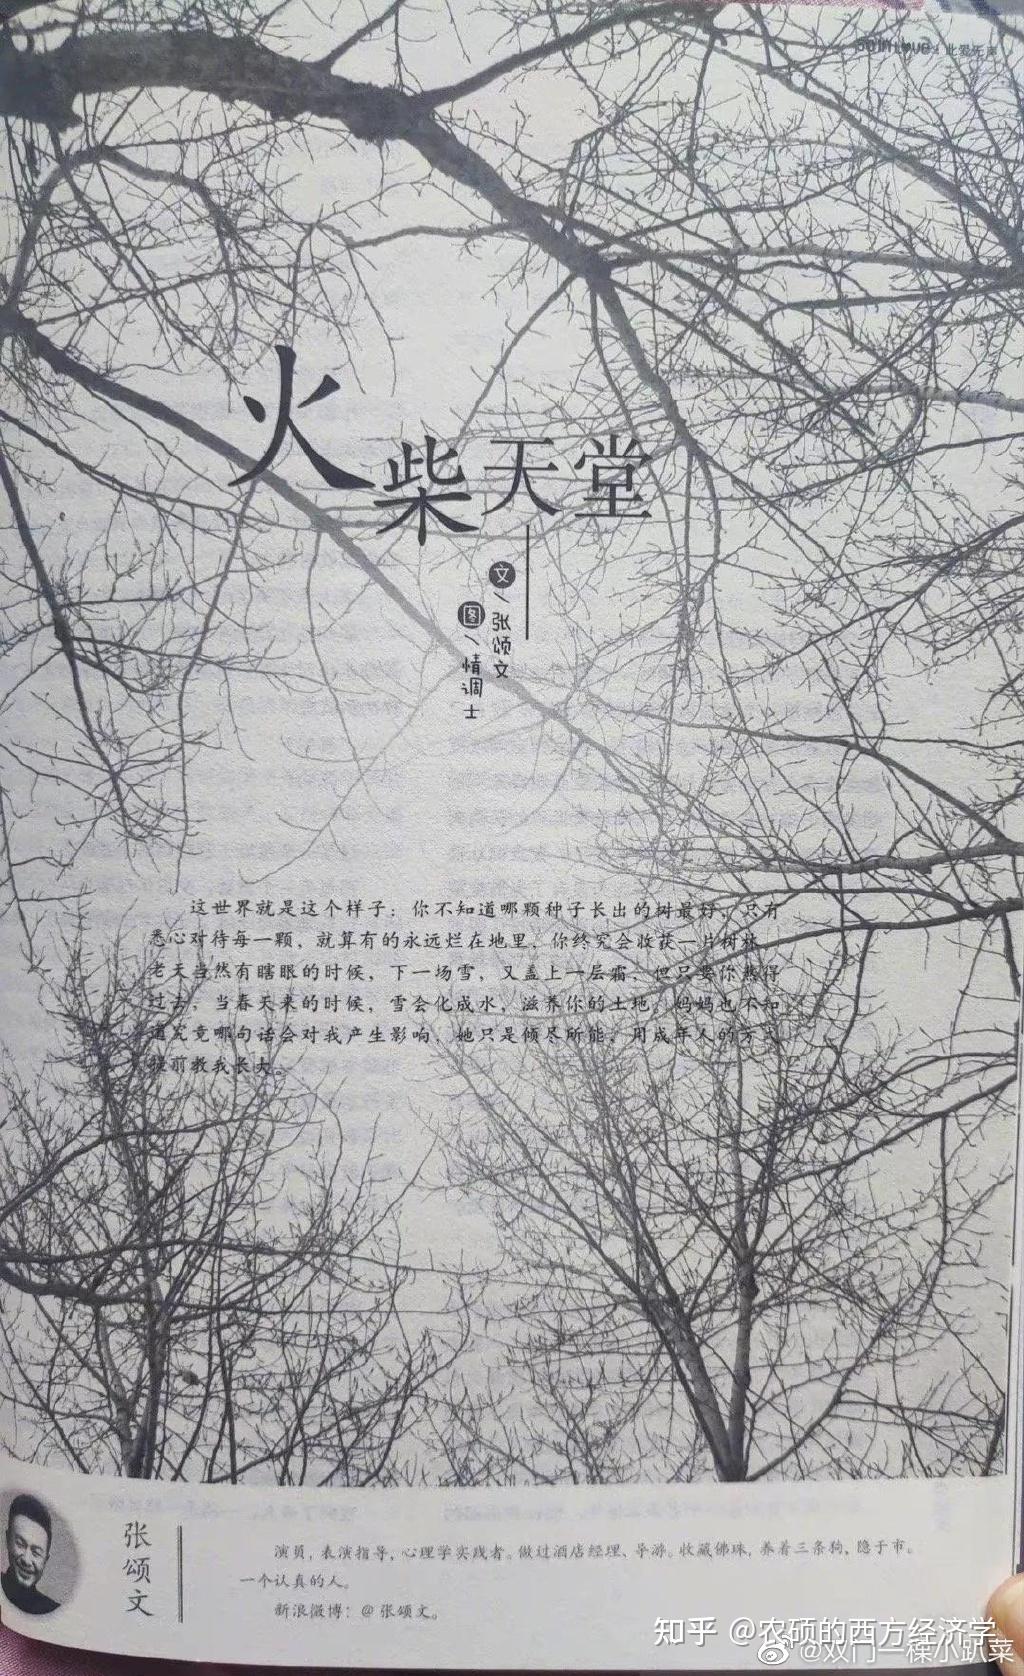 此爱无声
火柴天堂
文/张颂文
图/情调士
这世界就是这个样子：你不知道哪颗种子长出的树最好，只有
悉心对待每一颗，就算有的永远烂在地里，你终究会收获一片树林。
老天当然有瞎眼的时候，下一场雪，又盖上一层霜，但只要你熬得
过去，当春天来的时候，雪会化成水，滋养你的土地。妈妈也不知
道究竟哪句话会对我产生影响，她只是倾尽所能，用成年人的方式
提前教我长大。
张颂文
演员，表演指导，心理学实践者。做过酒店经理、导游。收藏佛珠，养着三条狗，隐于市。
一个认真的人。
新浪微博：@张颂文。
知乎 @农硕的西方经济学
@双门一棵小趴菜